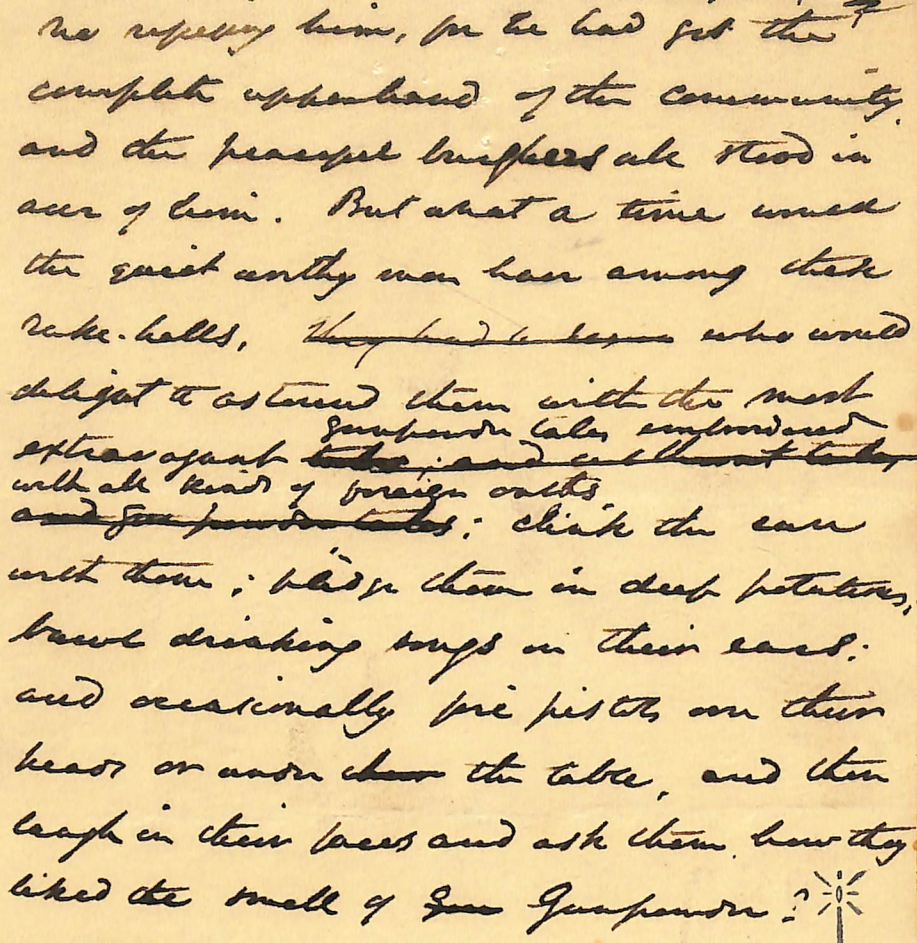 no repelling him, for he had got the
complete upperhand of the community,
and the peaceful burghers all stood in
awe of him. But what a time would
the quiet worthy men have among these
rake-hells, they had to who would
delight to astound them with the most
gunpowder tales embroidered
extravagant tales; and cut throat tales
with all kinds of foreign oaths,
and gun powder tales; clink the can
with them; pledge them in deep potations,
bawl drinking songs in their ears;
and occasionally fire pistols over their
heads or under them the table, and then
laugh in their faces and ask them how they
liked the smell of Gun Gunpowder?